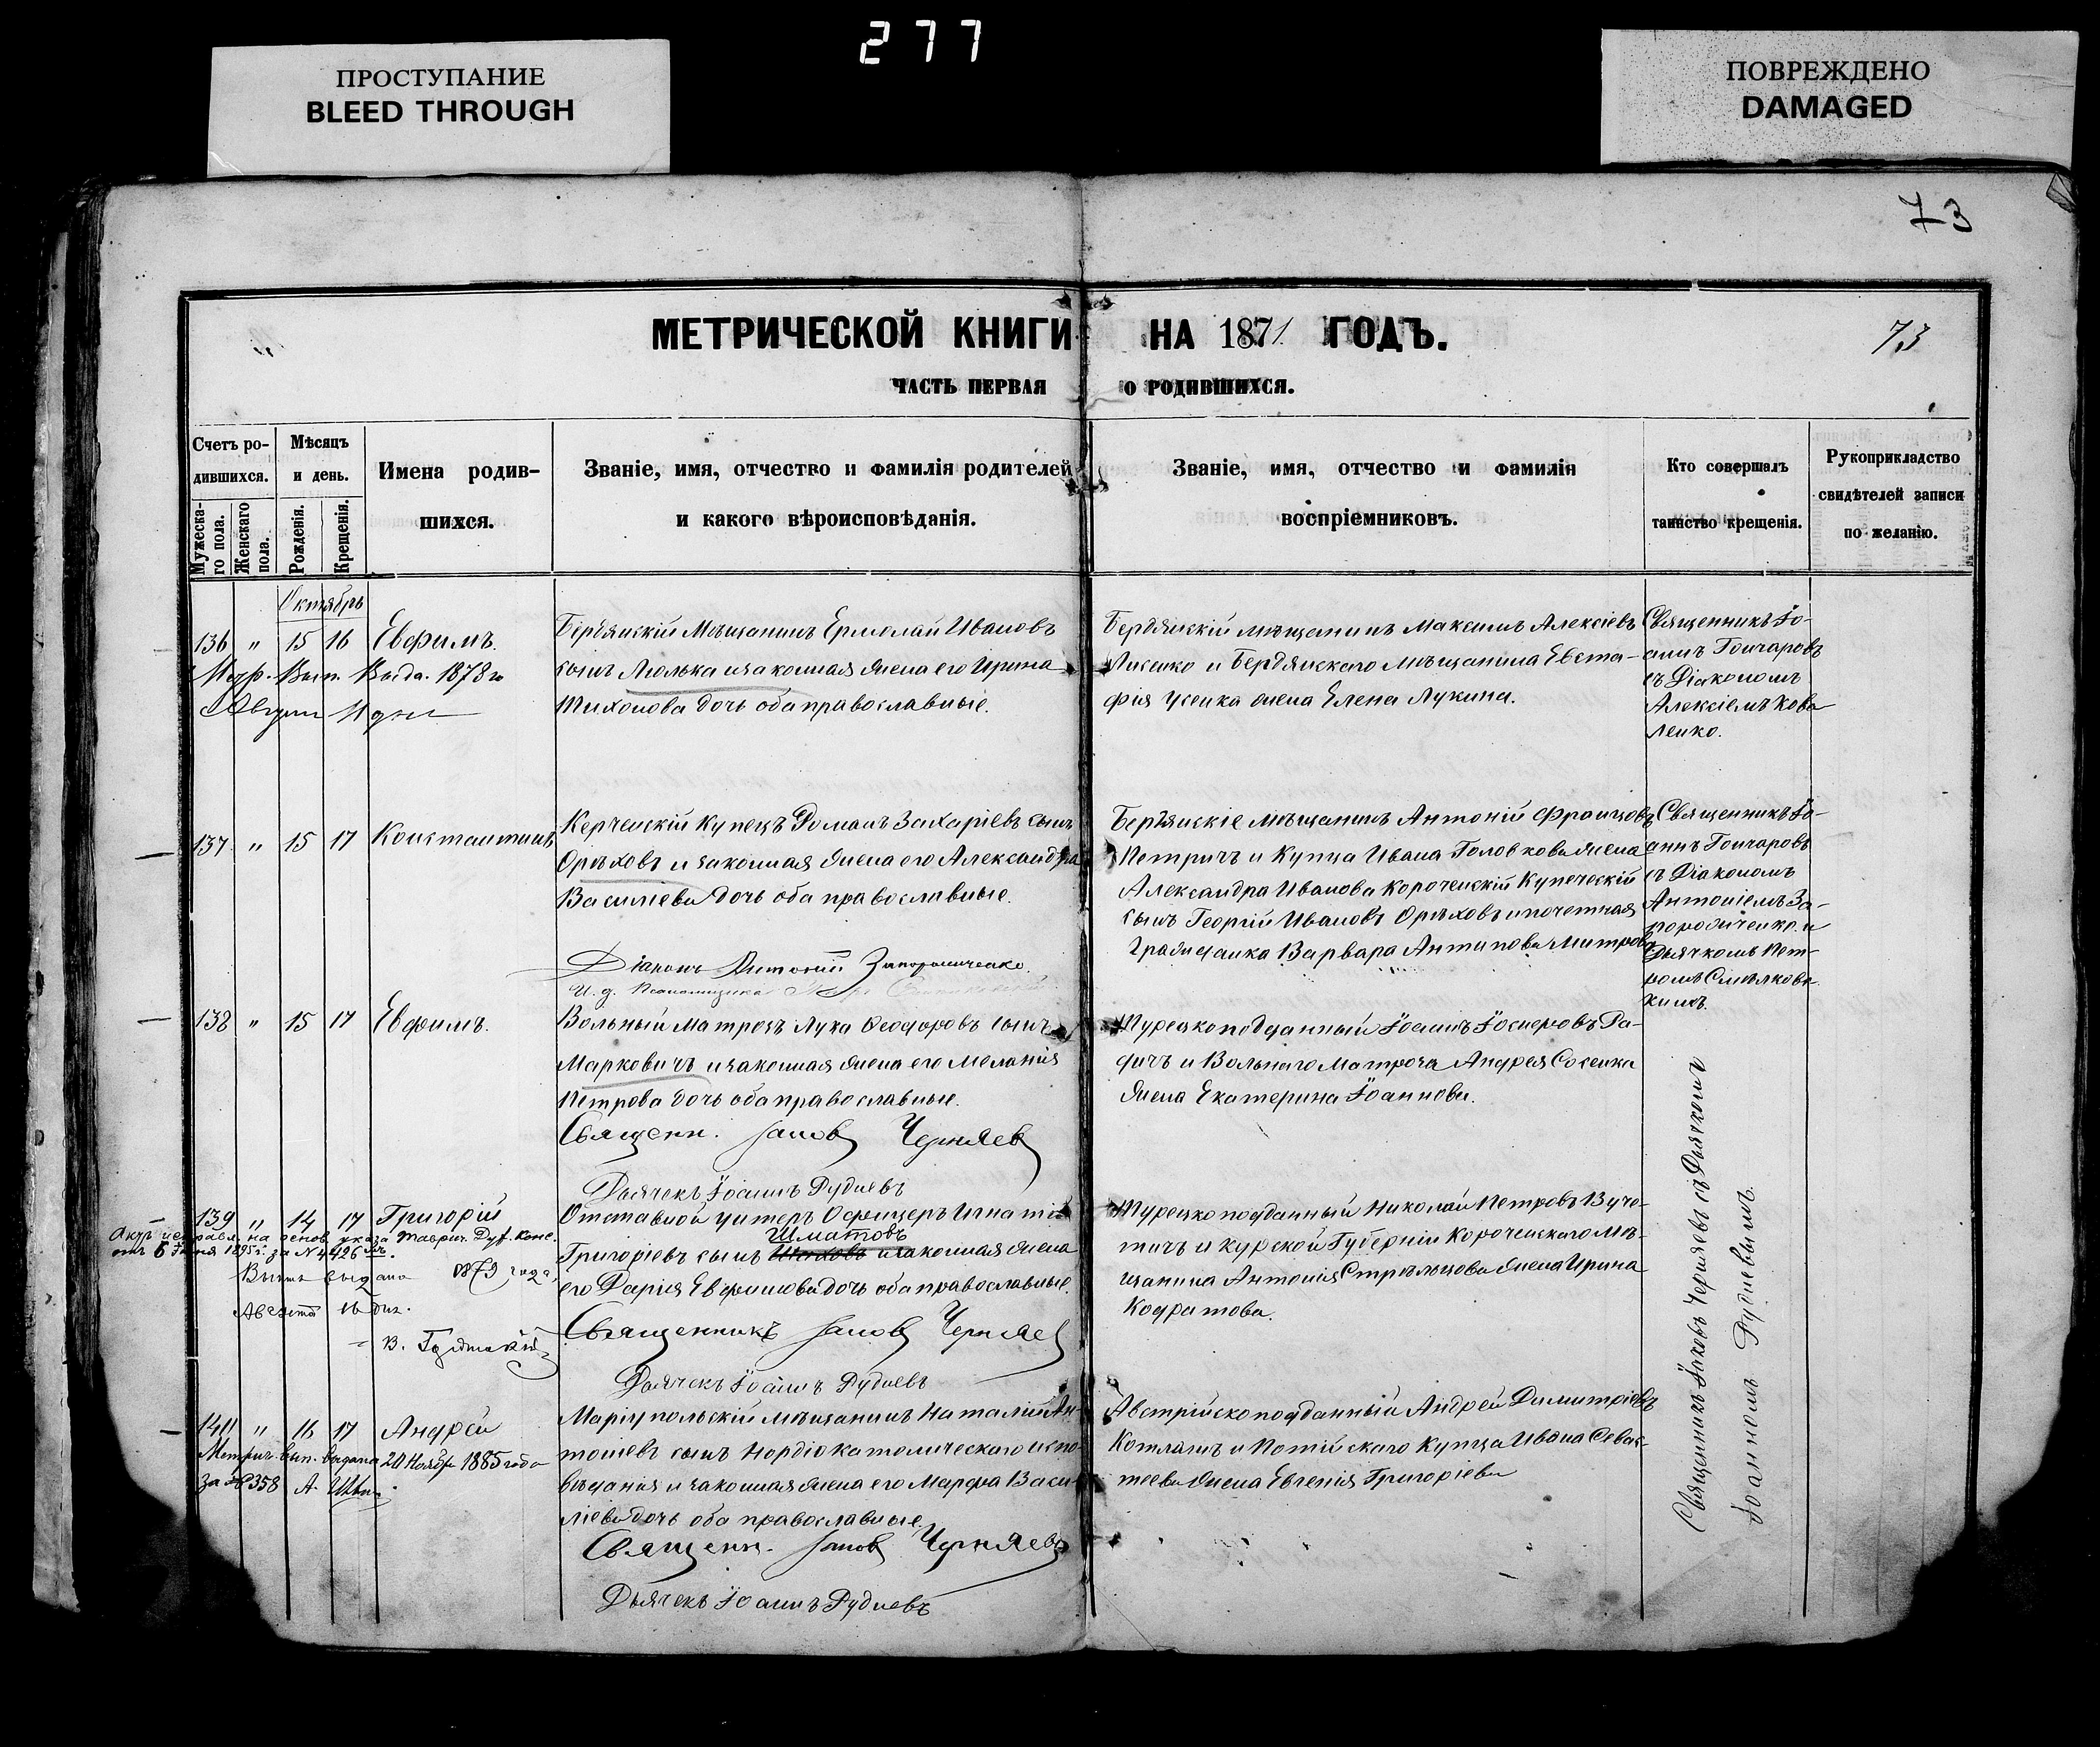 277
ПРОСТУПАНИЕ
BLEED THROUGH
ПОВРЕЖДЕНО
DAMAGED
73
МЕТРИЧЕСКОЙ КНИГИ НА 1871 ГОДЪ.
73
ЧАСТЬ ПЕРВАЯ О РОДИВШИХСЯ.
Счетъ ро-
дившихся.
Мужеска-
го пола.
Женскаго
пола.
Мѣсяцъ
и день.
Рожденія.
Крещенія.
Имена родив-
шихся.
Званіе, имя, отчество и фамилія родителей
и какого вѣроисповѣданія.
Званіе, имя, отчество и фамилія
воспріемниковъ.
Кто совершалъ
таинство крещенія.
Рукоприкладство
свидѣтелей записи
по желанію.
Октябрь
136 " 15 16 Евфимъ.
Метр. Вып. Выда. 1878 го
Августа
Бердянскій Мѣщанинъ Ермолай Ивановъ
сынъ Люлька и законная жена его Ирина
Тихонова дочь оба православные.
Бердянскій мѣщанинъ Максимъ Алексіевъ
Лисенко и Бердянскаго Мѣщанина Евста-
фія Усенка жена Елена Лукина.
Священникъ Іо-
аннъ Гончаровъ
съ Діакономъ
Алексіемъ Кова
ленко.
137 " 15 17 Константинъ
Керченскій Купецъ Романъ Захаріевъ сынъ
Орѣховъ и законная жена его Александра
Василіева дочь оба православные.
Діаконъ Антоній Запорожченко.
И. д. Псаломщика
Бердянскіе мѣщанинъ Антоній Францовъ
Петричъ и Купца Ивана Головкова жена
Александра Иванова Короченскій Купеческій
сынъ Георгій Ивановъ Орѣховъ и почетная
Гражданка Варвара Антипова Митрова
Священникъ Іо-
аннъ Гончаровъ
съ Діакономъ
Антоніемъ За-
порожченко и
Дьячкомъ Пет-
ромъ
138 " 15 17 Евфимъ.
Вольный Матросъ Лука Ѳеодоровъ сынъ
Марковичъ и законная жена его Меланія
Петрова дочь оба православные.
Священн. Іаковъ Черняевъ
Дьячекъ Іоаннъ Рудневъ
Турецкоподданный Іоаннъ Іосифовъ Ра-
дичъ и Вольнаго Матроса Андрея Сосенка
жена Екатерина Іоаннова.
139 " 14 17 Григорій
Актъ исправл. на основ. указа Таврич. Дух. Конс.
отъ 6 Іюня 1895 г. за № 4426мъ.
Выпись выдана 1879 года,
Августа 16 дня.
Отставной Унтеръ Офицеръ Игнатій
Шматовъ
Григоріевъ сынъ и законная жена
его Дарія Евфимова дочь оба православные.
Священникъ Іаковъ Черняевъ
Дьячекъ Іоаннъ Рудневъ
Турецкоподданный Николай Петровъ Вуче-
тичъ и Курской Губерніи Короченскаго мѣ-
щанина Антонія Стрѣльцова жена Ирина
Кодратова.
140 " 16 17 Андрей
Метрич. вып. выдана 20 Ноября 1885 года
за № 358
Маріупольскій мѣщанинъ Наталій Ан-
тоніевъ сынъ католическаго испо-
вѣданія и законная жена его Марфа Васи-
ліева дочь оба православные.
Священн. Іаковъ Черняевъ
Дьячекъ Іоаннъ Рудневъ
Австрійскоподданный Андрей Димитріевъ
Котлашъ и Потійскаго Купца Ивана Севас-
теева жена Евгенія Григоріева
Священникъ Іаковъ Черняевъ съ Дьячкомъ
Іоанномъ Рудневымъ.